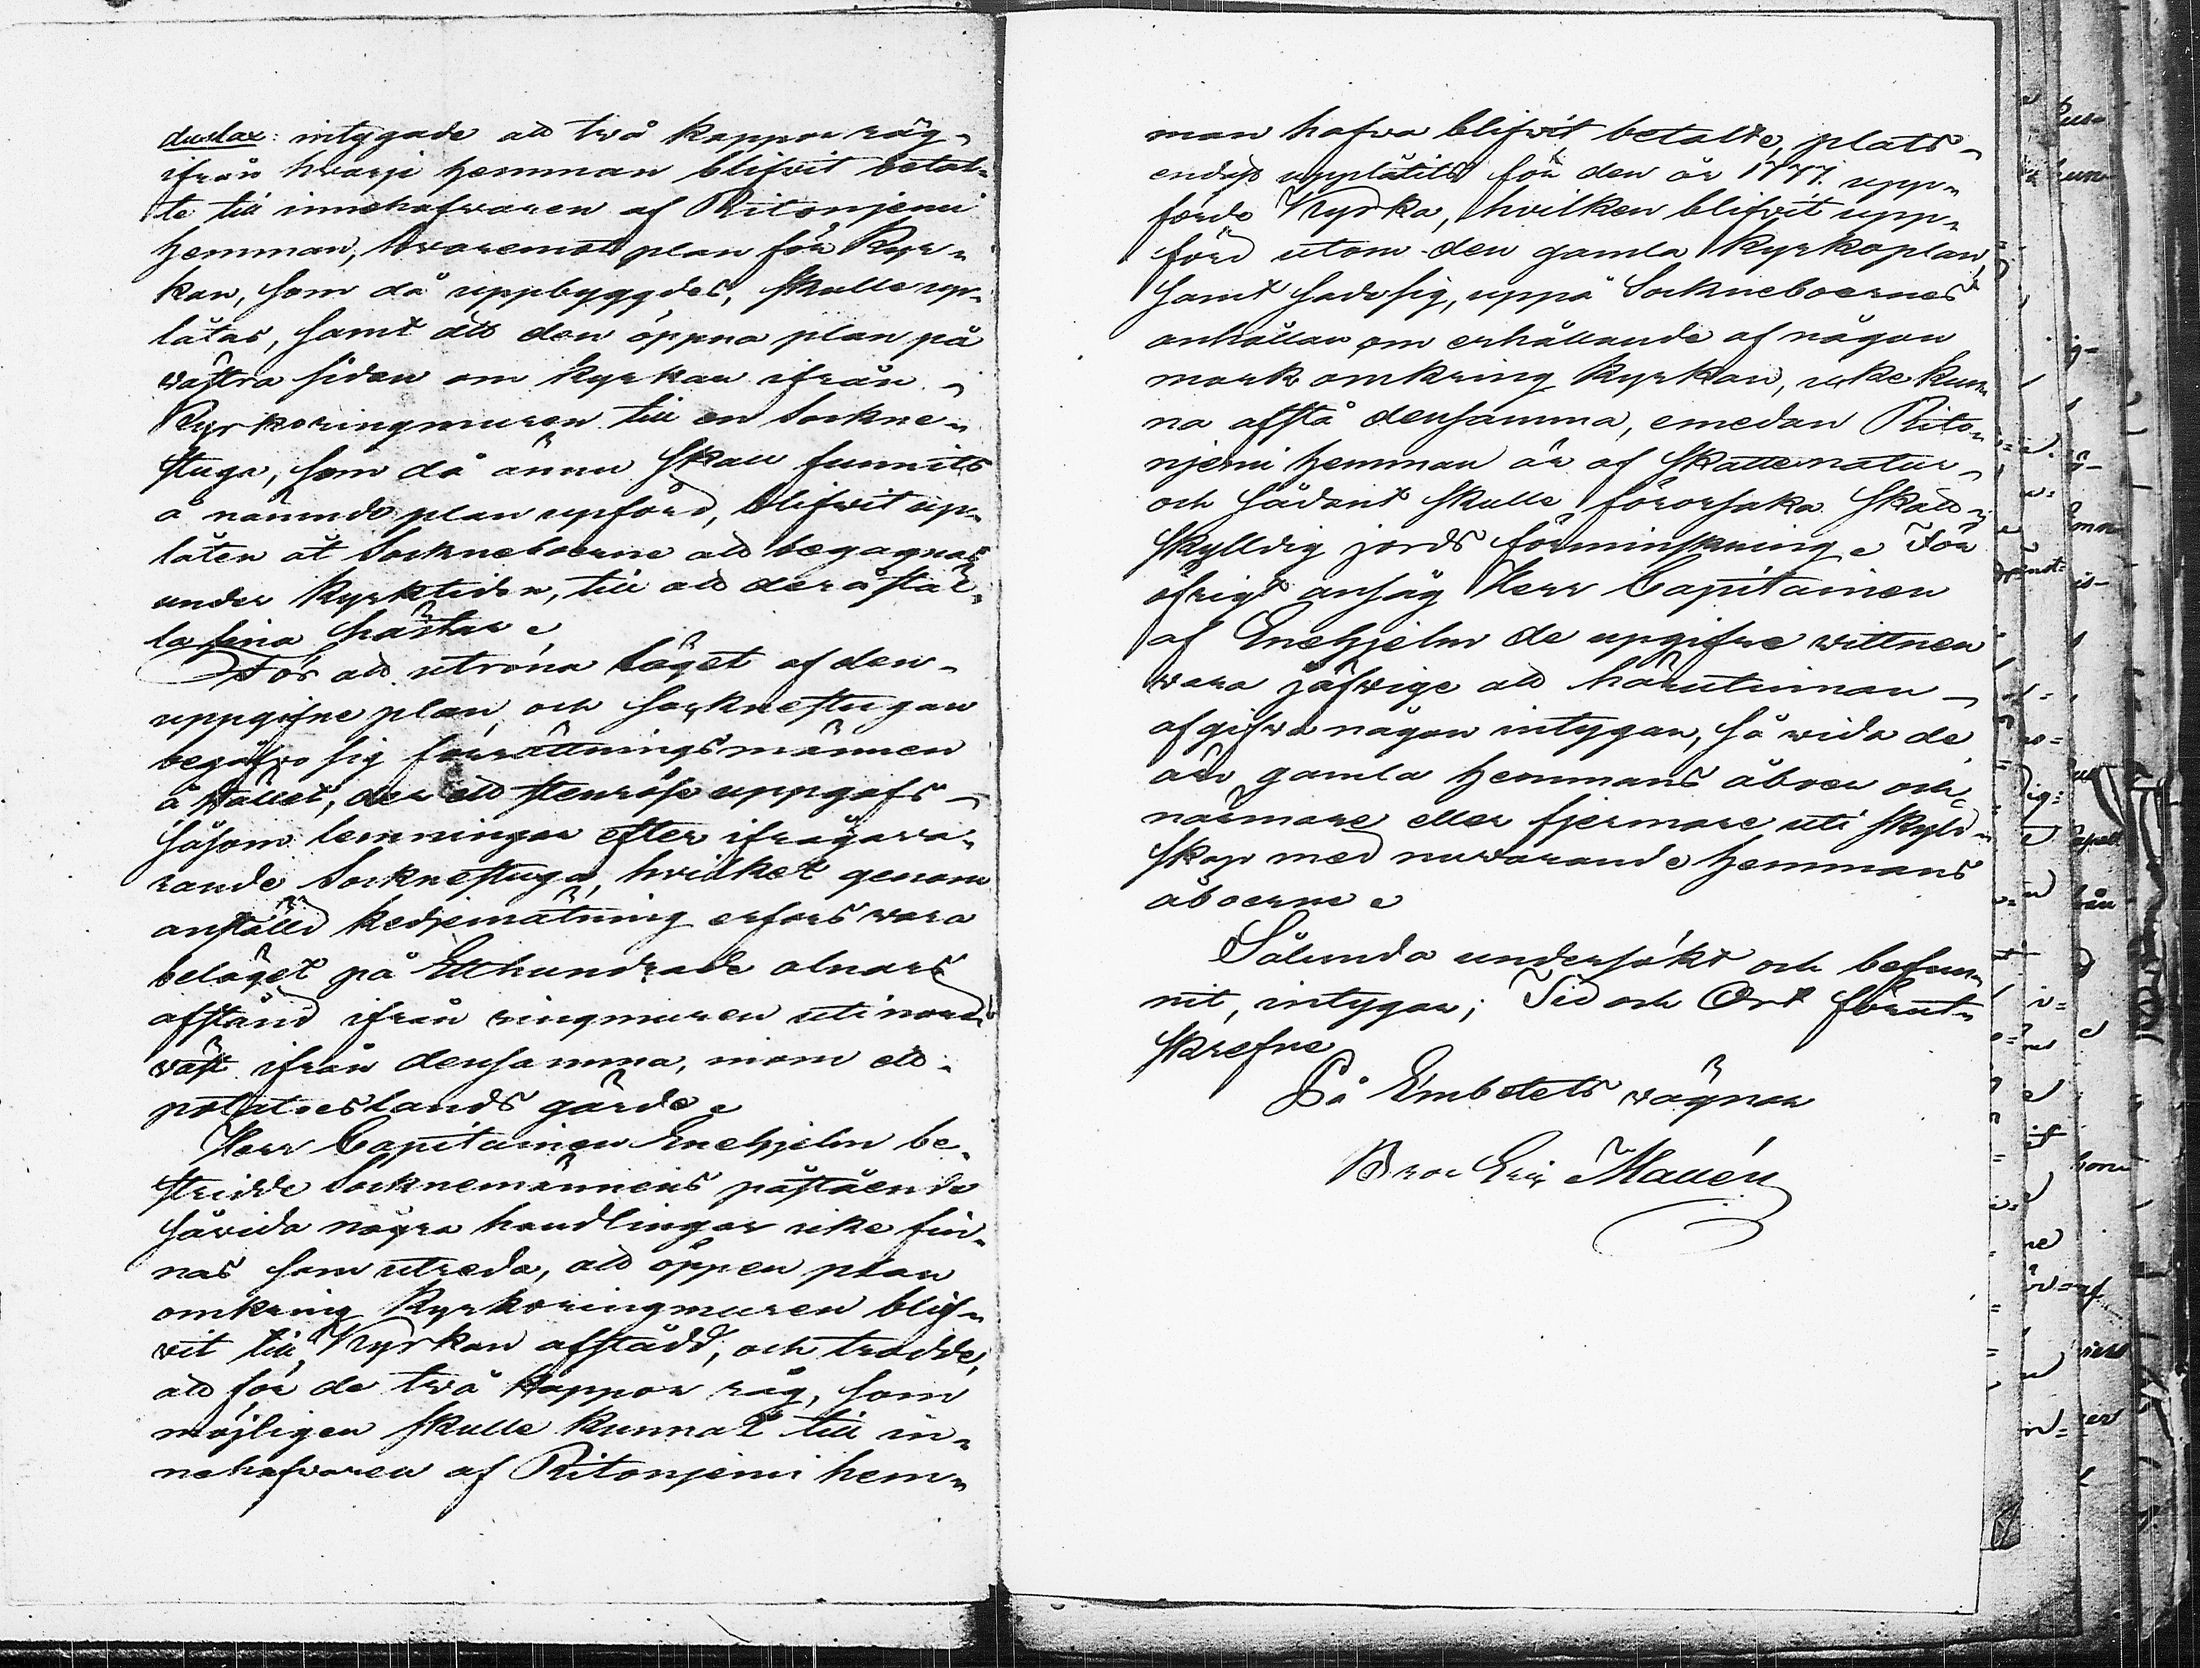 duslax: intygade att två kappor råg
ifrån hvarje hemman blifvit betal-
te till innehafwaren af Ritonjemi
hemman, hvaremot plan för Kyr-
kan, som då uppbyggdes, skulle up-
låtas, samt att den öppna plan på
västra sidan om kyrkan ifrån
Kyrkoringmuren till en Sockne-
stuga, som då ännu skall funnits
å nämnde plan upförd, blifvit up-
låten åt Sockneboerne att begagnas
under Kyrktiden, till att derå stäl-
la sina hästar.
För att utröna läget af den
uppgifne plan och socknestugan
begåfvo sig förrättningsmännen
å stället, der ett stenröse uppgafs
såsom lemningar efter ifrågava-
rande Socknestuga, hvilket genom
anställd kedjemätning erfors vara
beläget på Etthundrade alnars
afstånd ifrån ringmuren uti nord
väst ifrån densamma, inom ett
potatoeslands gärde.
Herr Capitainen Enehjelm be-
stridde Socknemännens påstående
såvida några handlingar icke fin-
nas som utreda, att öppen plan
omkring Kyrkoringmuren blif-
vit till Kyrkan afstådd, och trodde,
att för de två kappor råg, som
möjligen skulle kunnat till in-
nehafvaren af Ritonjemi hem-
man hafva blifvit betalte, plats
endast upplåtits för den år 1777. upp-
förde Kyrka, hvilken blifvit upp-
förd utom den gamla Kyrkoplan,
samt sade sig, uppå Sockneboernes
anhållan om erhållande af någon
mark omkring Kyrkan, icke kun-
na afstå densamma, emedan Rito-
njemi hemman är af skattenatur
och sådant skulle förorsaka skatt-
skylldig jords förminskning. För
öfrigt ansåg Herr Capitainen
af Enehjelm de upgifne vittnen
vara jäfvige att härutinnan
afgifva någon intygan, så vida de
äro gamla hemmans åboer och
närmare eller fjermare uti skyld-
skap med nuvarande hemmans
åboerne.
Sålunda undersökt och befun-
nit, intygar; Tid och Ort förut-
skrefne
På Embetets vägnar
Bror Eric Mallén